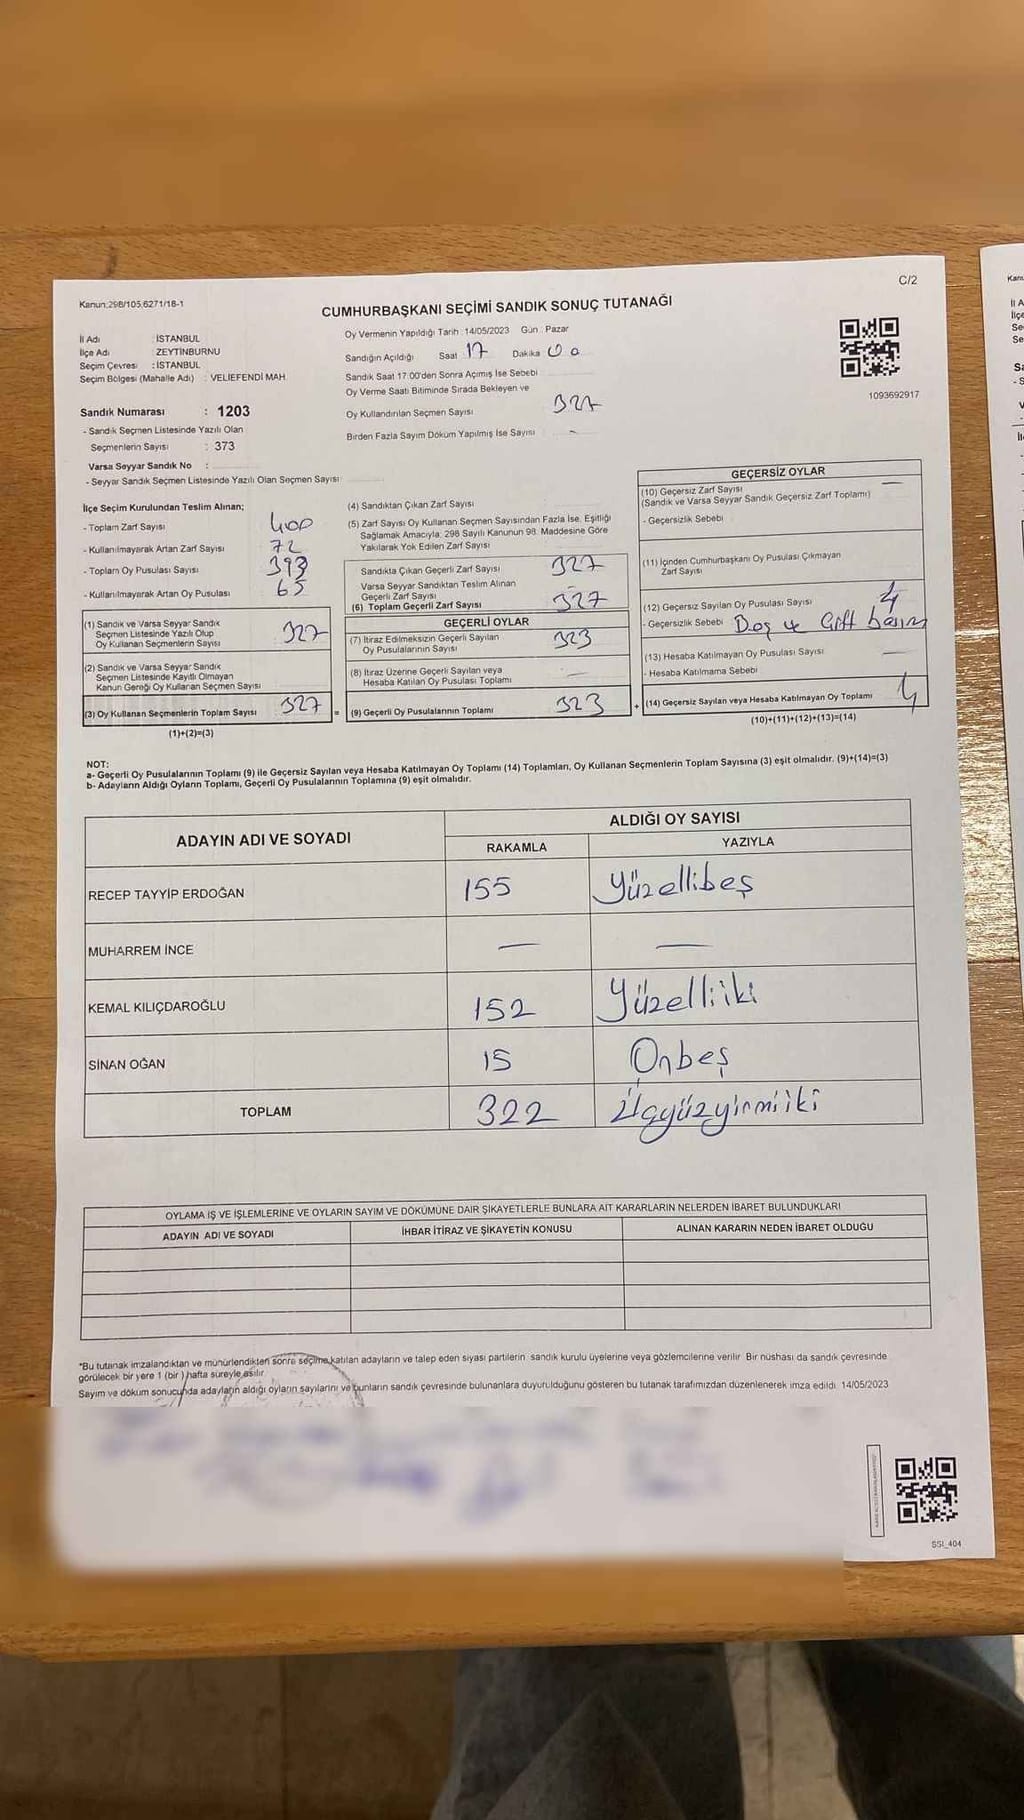 C/2
Kanun:298/105,6271/18-1
CUMHURBAŞKANI SEÇİMİ SANDIK SONUÇ TUTANAĞI
İl Adı : İSTANBUL
İlçe Adı : ZEYTİNBURNU
Seçim Çevresi : İSTANBUL
Seçim Bölgesi (Mahalle Adı) : VELİEFENDİ MAH
Sandık Numarası : 1203
- Sandık Seçmen Listesinde Yazılı Olan
Seçmenlerin Sayısı : 373
Varsa Seyyar Sandık No :
- Seyyar Sandık Seçmen Listesinde Yazılı Olan Seçmen Sayısı
Oy Vermenin Yapıldığı Tarih : 14/05/2023 Gün : Pazar
Sandığın Açıldığı Saat 17 Dakika 00
Sandık Saat 17:00'den Sonra Açımış İse Sebebi
Oy Verme Saati Bitiminde Sırada Bekleyen ve
Oy Kullandırılan Seçmen Sayısı 327
Birden Fazla Sayım Döküm Yapılmış İse Sayısı -
1093692917
İlçe Seçim Kurulundan Teslim Alınan;
- Toplam Zarf Sayısı 400
- Kullanılmayarak Artan Zarf Sayısı 72
- Toplam Oy Pusulası Sayısı 393
- Kullanılmayarak Artan Oy Pusulası 65
(1) Sandık ve Varsa Seyyar Sandık
Seçmen Listesinde Yazılı Olup
Oy Kullanan Seçmenlerin Sayısı 327
(2) Sandık ve Varsa Seyyar Sandık
Seçmen Listesinde Kayıtlı Olmayan
Kanun Gereği Oy Kullanan Seçmen Sayısı
(3) Oy Kullanan Seçmenlerin Toplam Sayısı 327 =
(1)+(2)=(3)
(4) Sandıktan Çıkan Zarf Sayısı
(5) Zarf Sayısı Oy Kullanan Seçmen Sayısından Fazla İse, Eşitliği
Sağlamak Amacıyla; 298 Sayılı Kanunun 98. Maddesine Göre
Yakılarak Yok Edilen Zarf Sayısı
Sandıkta Çıkan Geçerli Zarf Sayısı 327
Varsa Seyyar Sandıktan Teslim Alınan
Geçerli Zarf Sayısı -
(6) Toplam Geçerli Zarf Sayısı 327
GEÇERLİ OYLAR
(7) İtiraz Edilmeksizin Geçerli Sayılan
Oy Pusulalarının Sayısı 323
(8) İtiraz Üzerine Geçerli Sayılan veya
Hesaba Katılan Oy Pusulası Toplamı —
(9) Geçerli Oy Pusulalarının Toplamı 323 +
GEÇERSİZ OYLAR
(10) Geçersiz Zarf Sayısı —
(Sandık ve Varsa Seyyar Sandık Geçersiz Zarf Toplamı)
- Geçersizlik Sebebi
(11) İçinden Cumhurbaşkanı Oy Pusulası Çıkmayan
Zarf Sayısı
(12) Geçersiz Sayılan Oy Pusulası Sayısı 4
- Geçersizlik Sebebi Boş ve Çift basım
(13) Hesaba Katılmayan Oy Pusulası Sayısı —
- Hesaba Katılmama Sebebi
(14) Geçersiz Sayılan veya Hesaba Katılmayan Oy Toplamı 4
(10)+(11)+(12)+(13)=(14)
NOT:
a- Geçerli Oy Pusulalarının Toplamı (9) ile Geçersiz Sayılan veya Hesaba Katılmayan Oy Toplamı (14) Toplamları, Oy Kullanan Seçmenlerin Toplam Sayısına (3) eşit olmalıdır. (9)+(14)=(3)
b- Adayların Aldığı Oyların Toplamı, Geçerli Oy Pusulalarının Toplamına (9) eşit olmalıdır.
ADAYIN ADI VE SOYADI ALDIĞI OY SAYISI
RAKAMLA YAZIYLA
RECEP TAYYİP ERDOĞAN 155 Yüzellibeş
MUHARREM İNCE — —
KEMAL KILIÇDAROĞLU 152 Yüzelliiki
SİNAN OĞAN 15 Onbeş
TOPLAM 322 Üçyüzyirmiiki
OYLAMA İŞ VE İŞLEMLERİNE VE OYLARIN SAYIM VE DÖKÜMÜNE DAİR ŞİKAYETLERLE BUNLARA AİT KARARLARIN NELERDEN İBARET BULUNDUKLARI
ADAYIN ADI VE SOYADI İHBAR İTİRAZ VE ŞİKAYETİN KONUSU ALINAN KARARIN NEDEN İBARET OLDUĞU
*Bu tutanak imzalandıktan ve mühürlendikten sonra seçime katılan adayların ve talep eden siyasi partilerin sandık kurulu üyelerine veya gözlemcilerine verilir. Bir nüshası da sandık çevresinde
görülecek bir yere 1 (bir) hafta süreyle asılır.
Sayım ve döküm sonucunda adayların aldığı oyların sayılarını ve bunların sandık çevresinde bulunanlara duyurulduğunu gösteren bu tutanak tarafımızdan düzenlenerek imza edildi. 14/05/2023
SSI_404